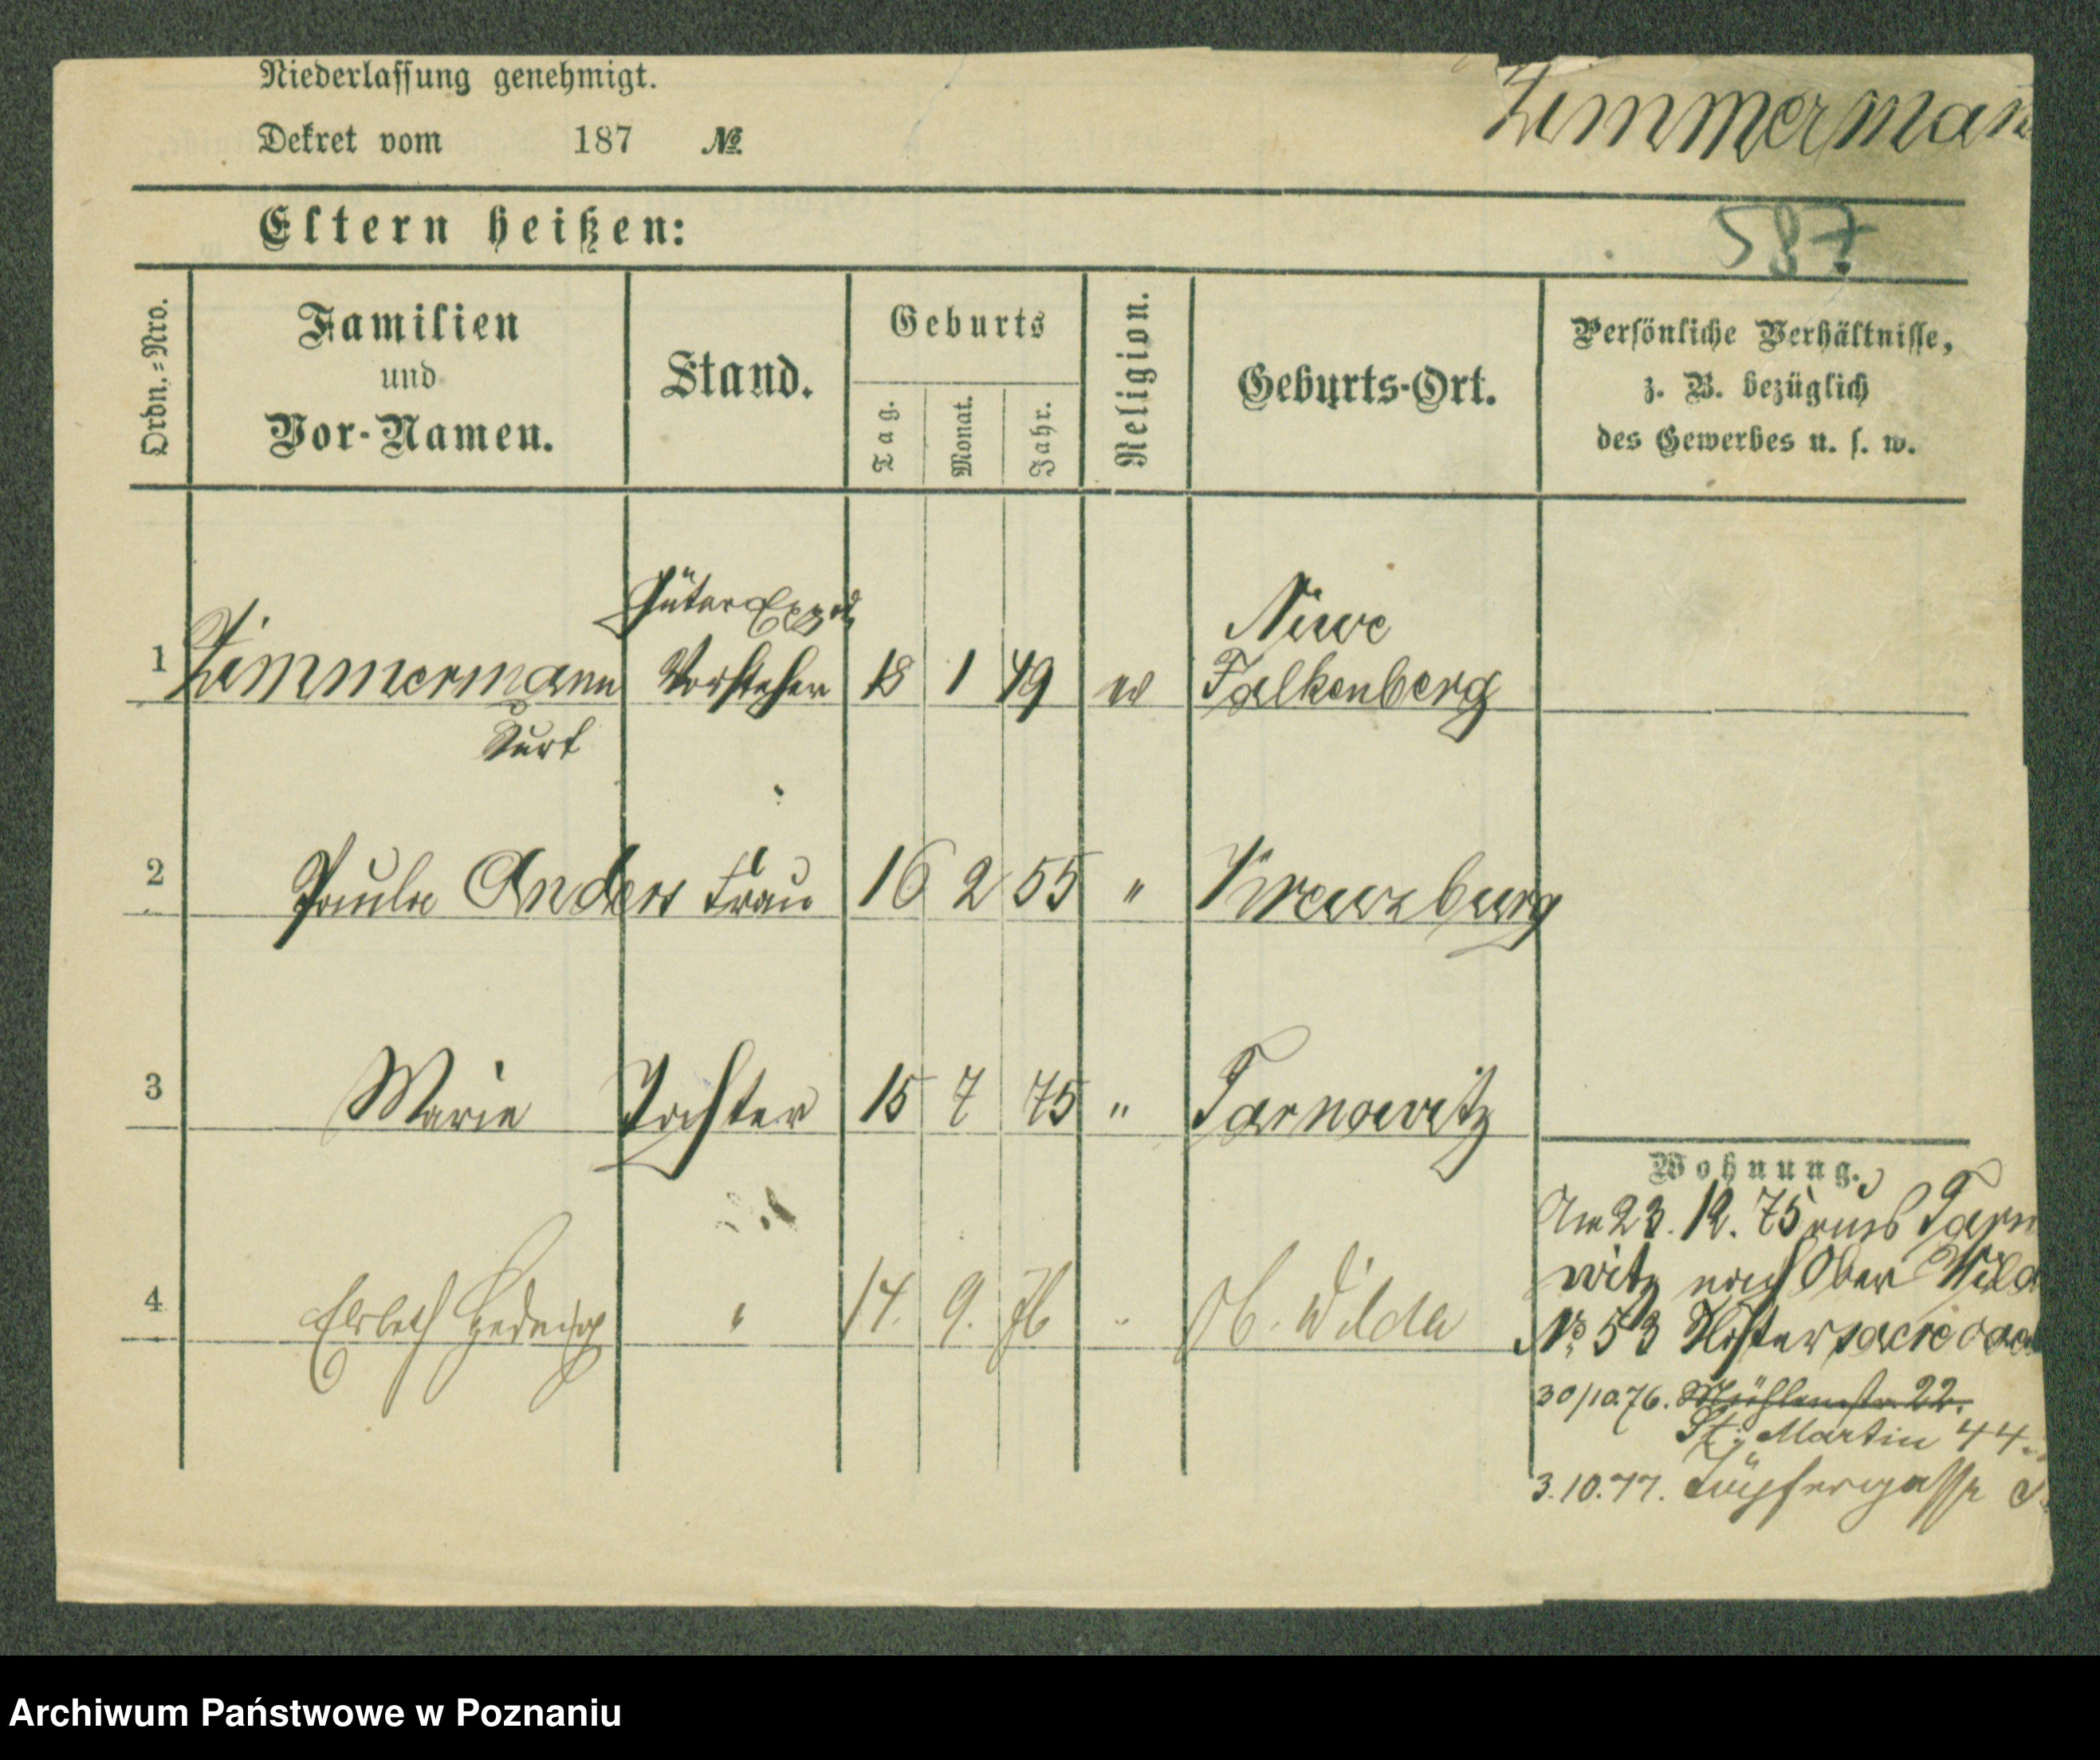 Niederlassung genehmigt.
Dekret vom 187 №
Zimmermann
Eltern heißen:
587
Ordn.-Nro.
Familien
und
Vor-Namen.
Stand.
Geburts
Tag.
Monat.
Jahr.
Religion.
Geburts-Ort.
Persönliche Verhältnisse,
z. B. bezüglich
des Gewerbes u. s. w.
Güter Exped.
1 Zimmermann Vorsteher 18 1 49 Falkenberg
Kurt
2 Paula Anders Frau 16 2 55 " Kreuzburg
3 Marie Tochter 15 7 75 " Tarnowitz
Wohnung.
Am 23. 12. 75 aus Tarn
witz nach Ober Wild
4 Elsbeth Hedwig " 14. 9. 76 " Ob. Wilda
№ 53
30/10.76. Mühlenstr. 22.
St. Martin 44.
3.10.77. Töpfergasse
Archiwum Państwowe w Poznaniu